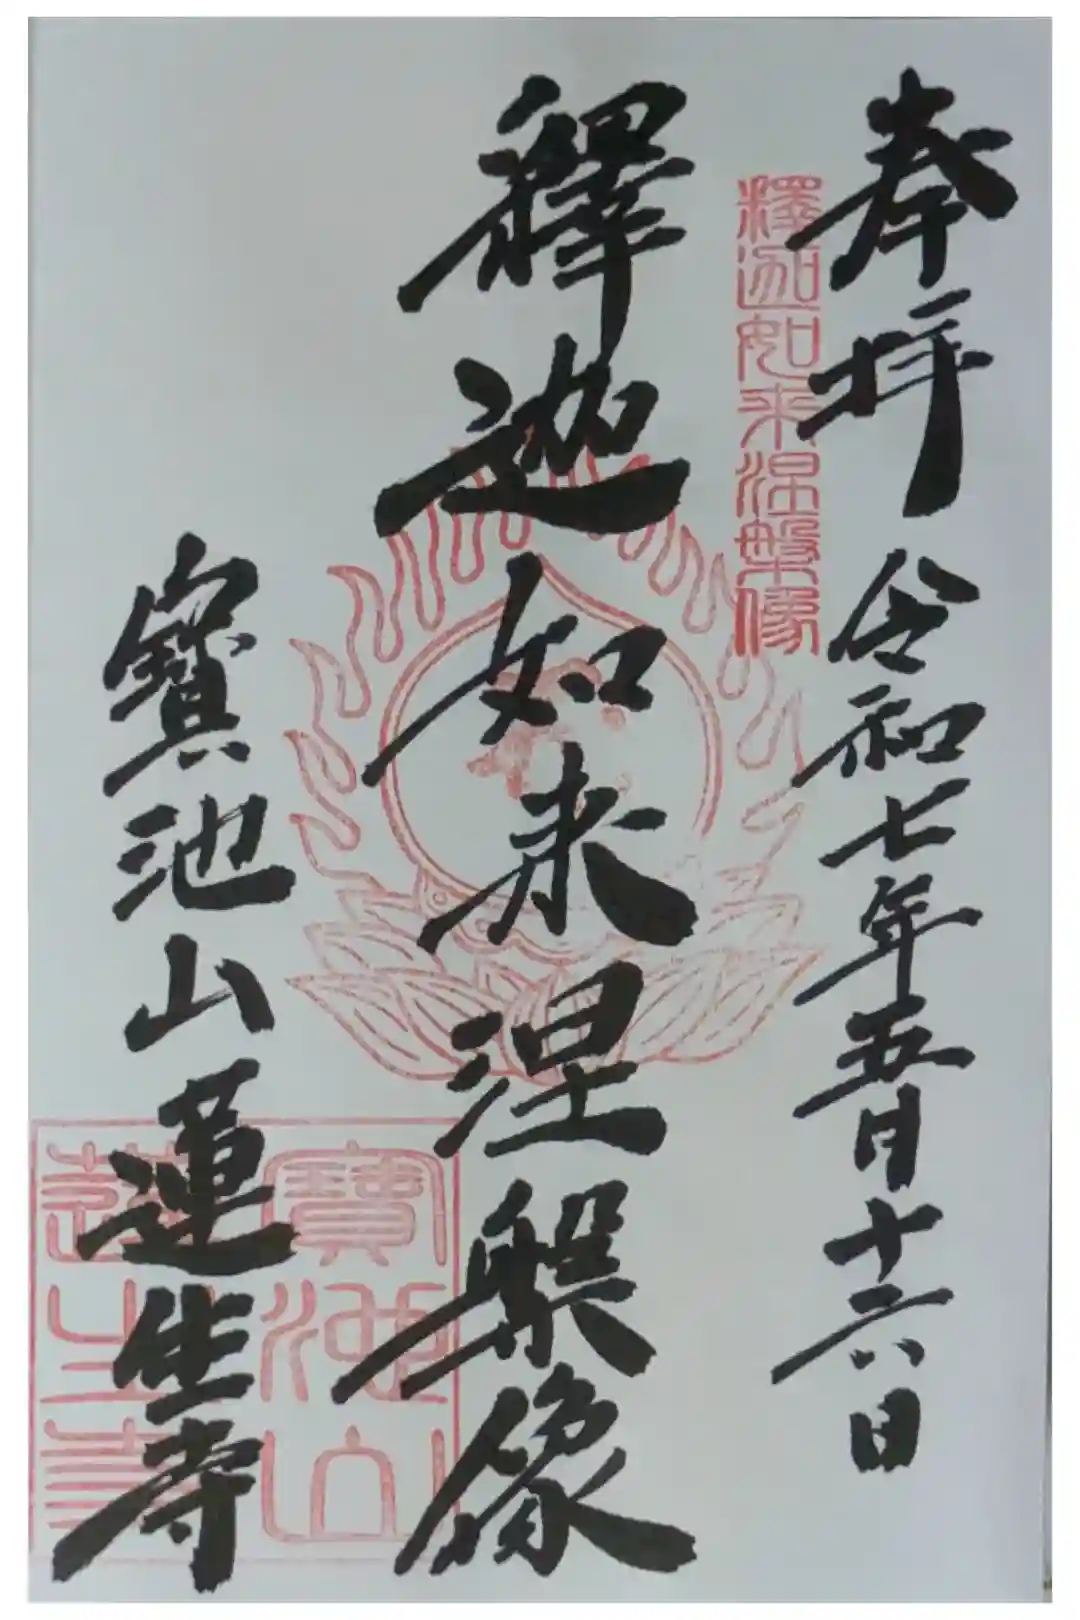 奉拝 令和七年五月十六日
釋迦如来涅槃像
釋迦如来涅槃像
寳池山蓮生寺
寳池山蓮生寺